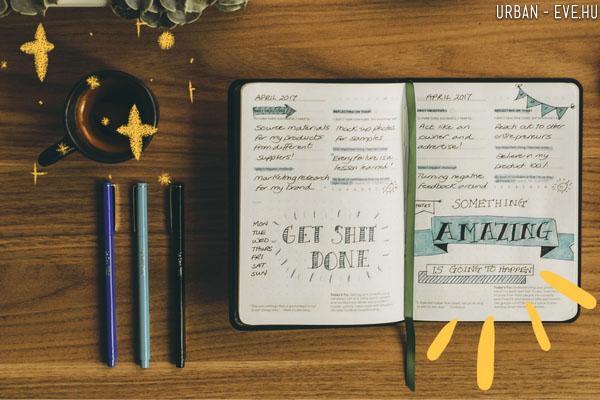 URBAN - EVE.HU
APRIL 2017
REFLECTING ON TODAY
Source materials
for my products
from different
suppliers!
marketing research
for my brand
mock up photos
for samples
"Every failure is a
lesson learned"
MON
TUE
WED
THURS
FRI
SAT
SUN
GET SHIT
DONE
APRIL 2017
REFLECTING ON TODAY
Act like an
owner and
advertise!
Turning negative
feedback around
Reach out to other
entrepreneurs
Believe in my
product 100%!
NOTES
SOMETHING
AMAZING
IS GOING TO HAPPEN